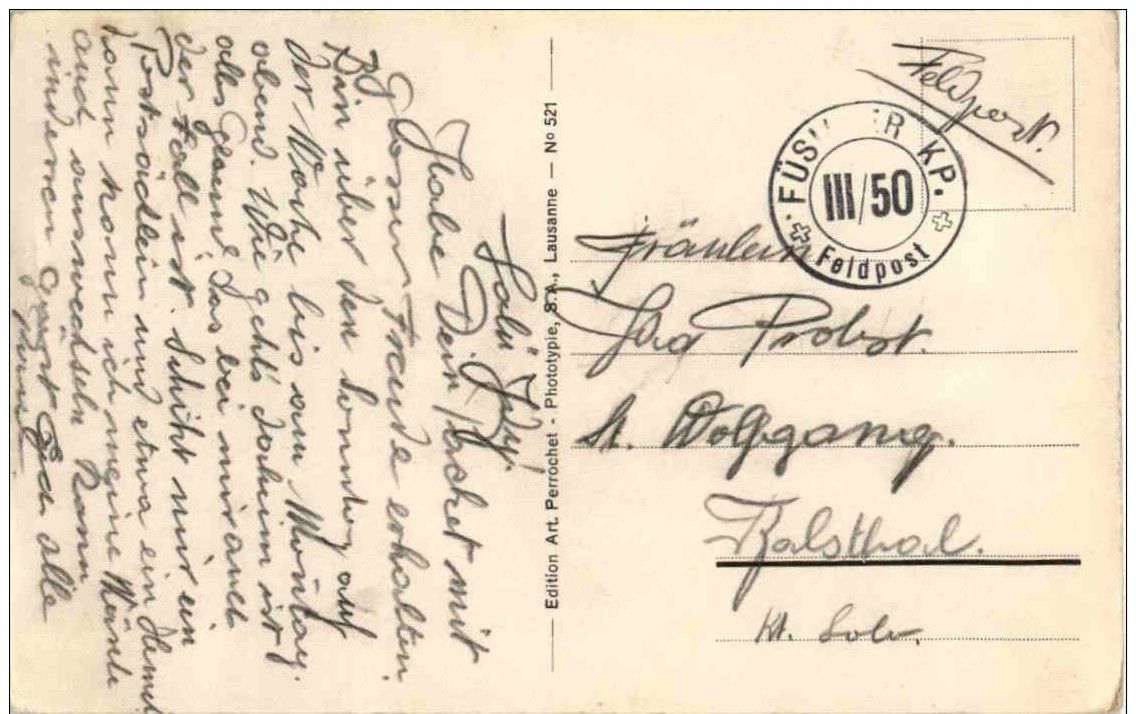 Salü Idy.
Habe Dein Packet mit
grosser Freude erhalten.
Bin über den Sonntag auf
der Wache bis am Montag
abend. Wie geht's daheim ist
alles gesund das bei mir auch
der Fall ist. Schikt mir ein
Postsäcklein und etwa ein Hemd
dann kann ich meine Wäsche
auch auswechseln kann
Grüst Euch alle
Edition Art. Perrochet - Phototypie, S.A., Lausanne — No 521
Feldpost.
FÜS KP.
III/50
Feldpost
Fräulein
Ida Probst.
St. Wolfgang.
Balsthal.
Kt. Solo.